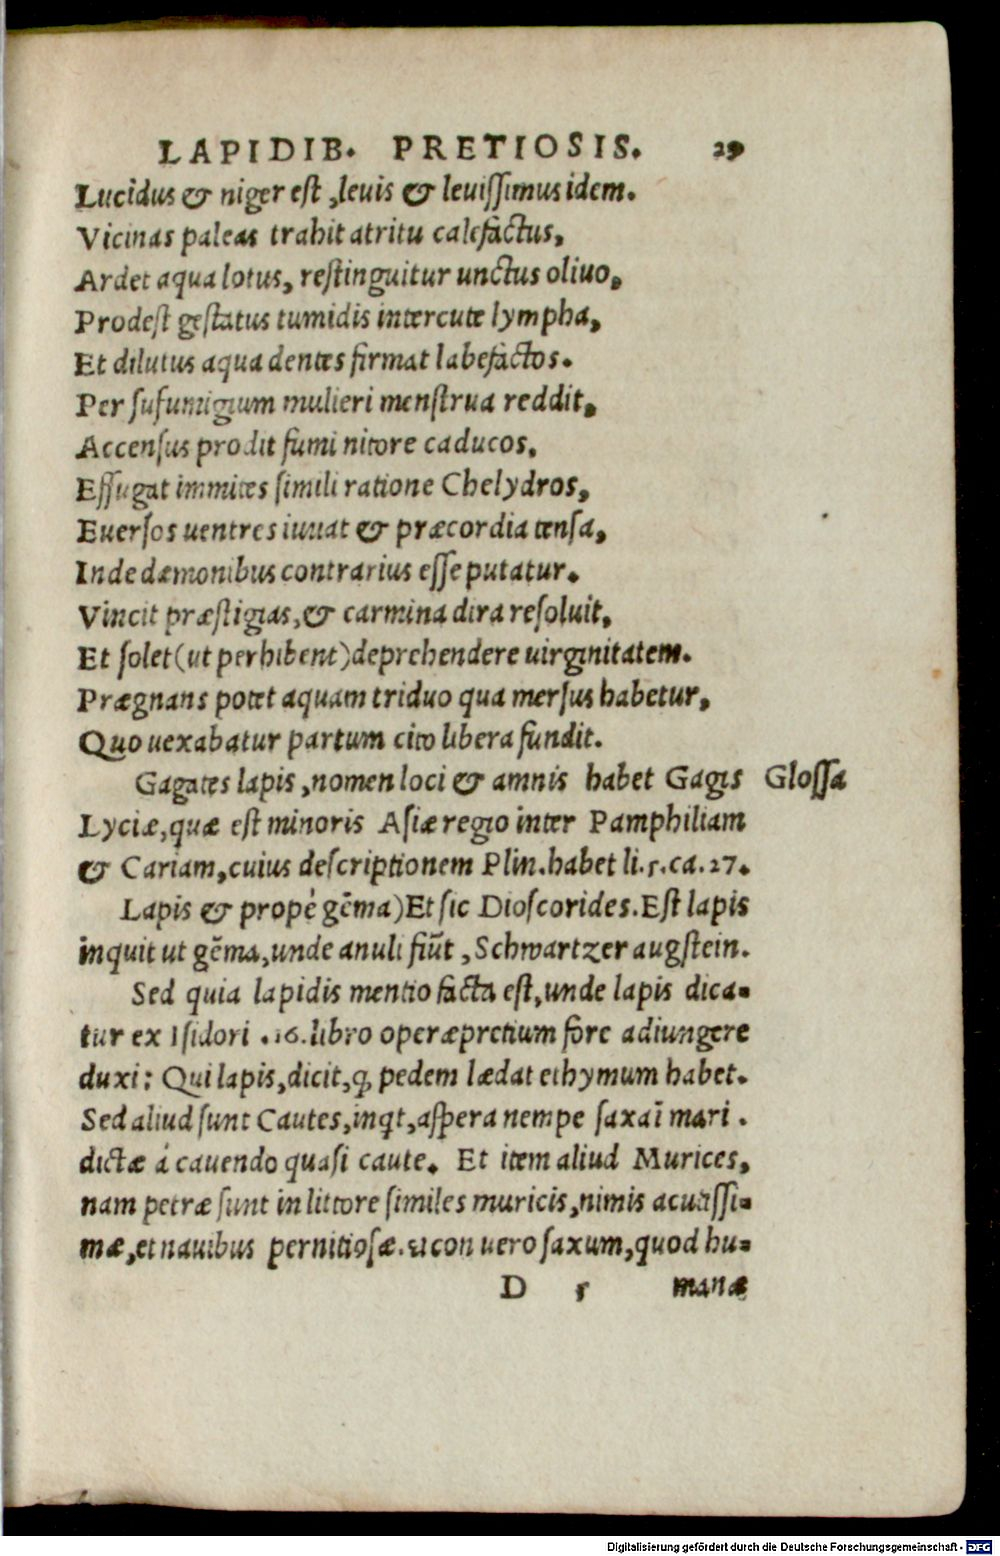 LAPIDIB. PRETIOSIS. 29
Lucidus & niger est, leuis & leuissimus idem.
Vicinas paleas trahit atritu calefactus,
Ardet aqua lotus, restinguitur unctus oliuo,
Prodest gestatus tumidis intercute lympha,
Et dilutus aqua dentes firmat labefactos.
Per sufumigium mulieri menstrua reddit,
Accensus prodit fumi nitore caducos.
Effugat immites simili ratione Chelydros,
Euersos uentres iuuat & præcordia tensa,
Inde dæmonibus contrarius esse putatur.
Vincit præstigias, & carmina dira resoluit,
Et solet (ut perhibent) deprehendere uirginitatem.
Prægnans potet aquam triduo qua mersus habetur,
Quo uexabatur partum cito libera fundit.
Gagates lapis, nomen loci & amnis habet Gagis Glossa
Lyciæ, quæ est minoris Asiæ regio inter Pamphiliam
& Cariam, cuius descriptionem Plin. habet li. 5. ca. 27.
Lapis & propè gēma) Et sic Dioscorides. Est lapis
inquit ut gēma, unde anuli fiūt, Schwartzer augstein.
Sed quia lapidis mentio facta est, unde lapis dica-
tur ex Isidori .16. libro operæpretium fore adiungere
duxi: Qui lapis, dicit, ꝙ pedem lædat ethymum habet.
Sed aliud sunt Cautes, inqt, aspera nempe saxa ī mari.
dictæ á cauendo quasi caute. Et item aliud Murices,
nam petræ sunt in littore similes muricis, nimis acutissi-
mæ, et nauibus pernitiosæ. Icon uero saxum, quod hu-
D 5 manæ
Digitalisierung gefördert durch die Deutsche Forschungsgemeinschaft - DFG